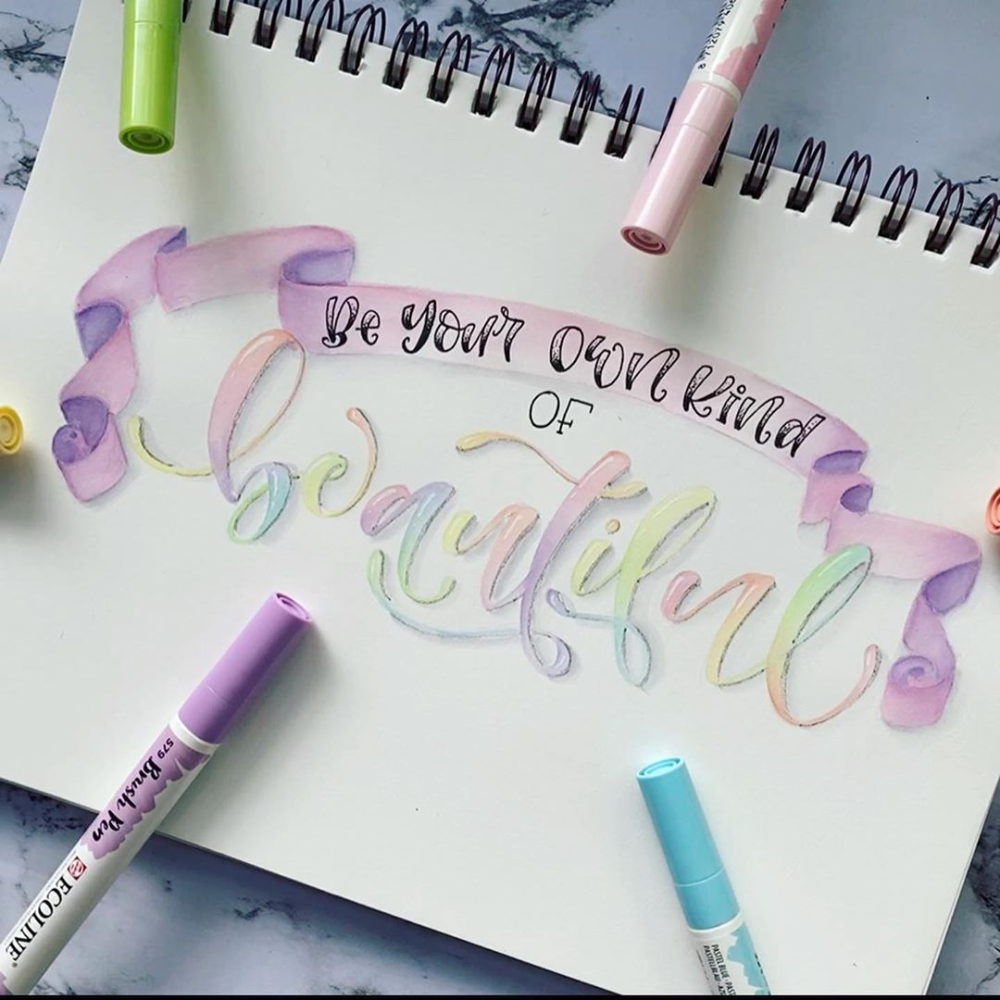 Be Your Own Kind
OF
beautiful
579 Brush Pen
ECOLINE
PASTEL BLUE